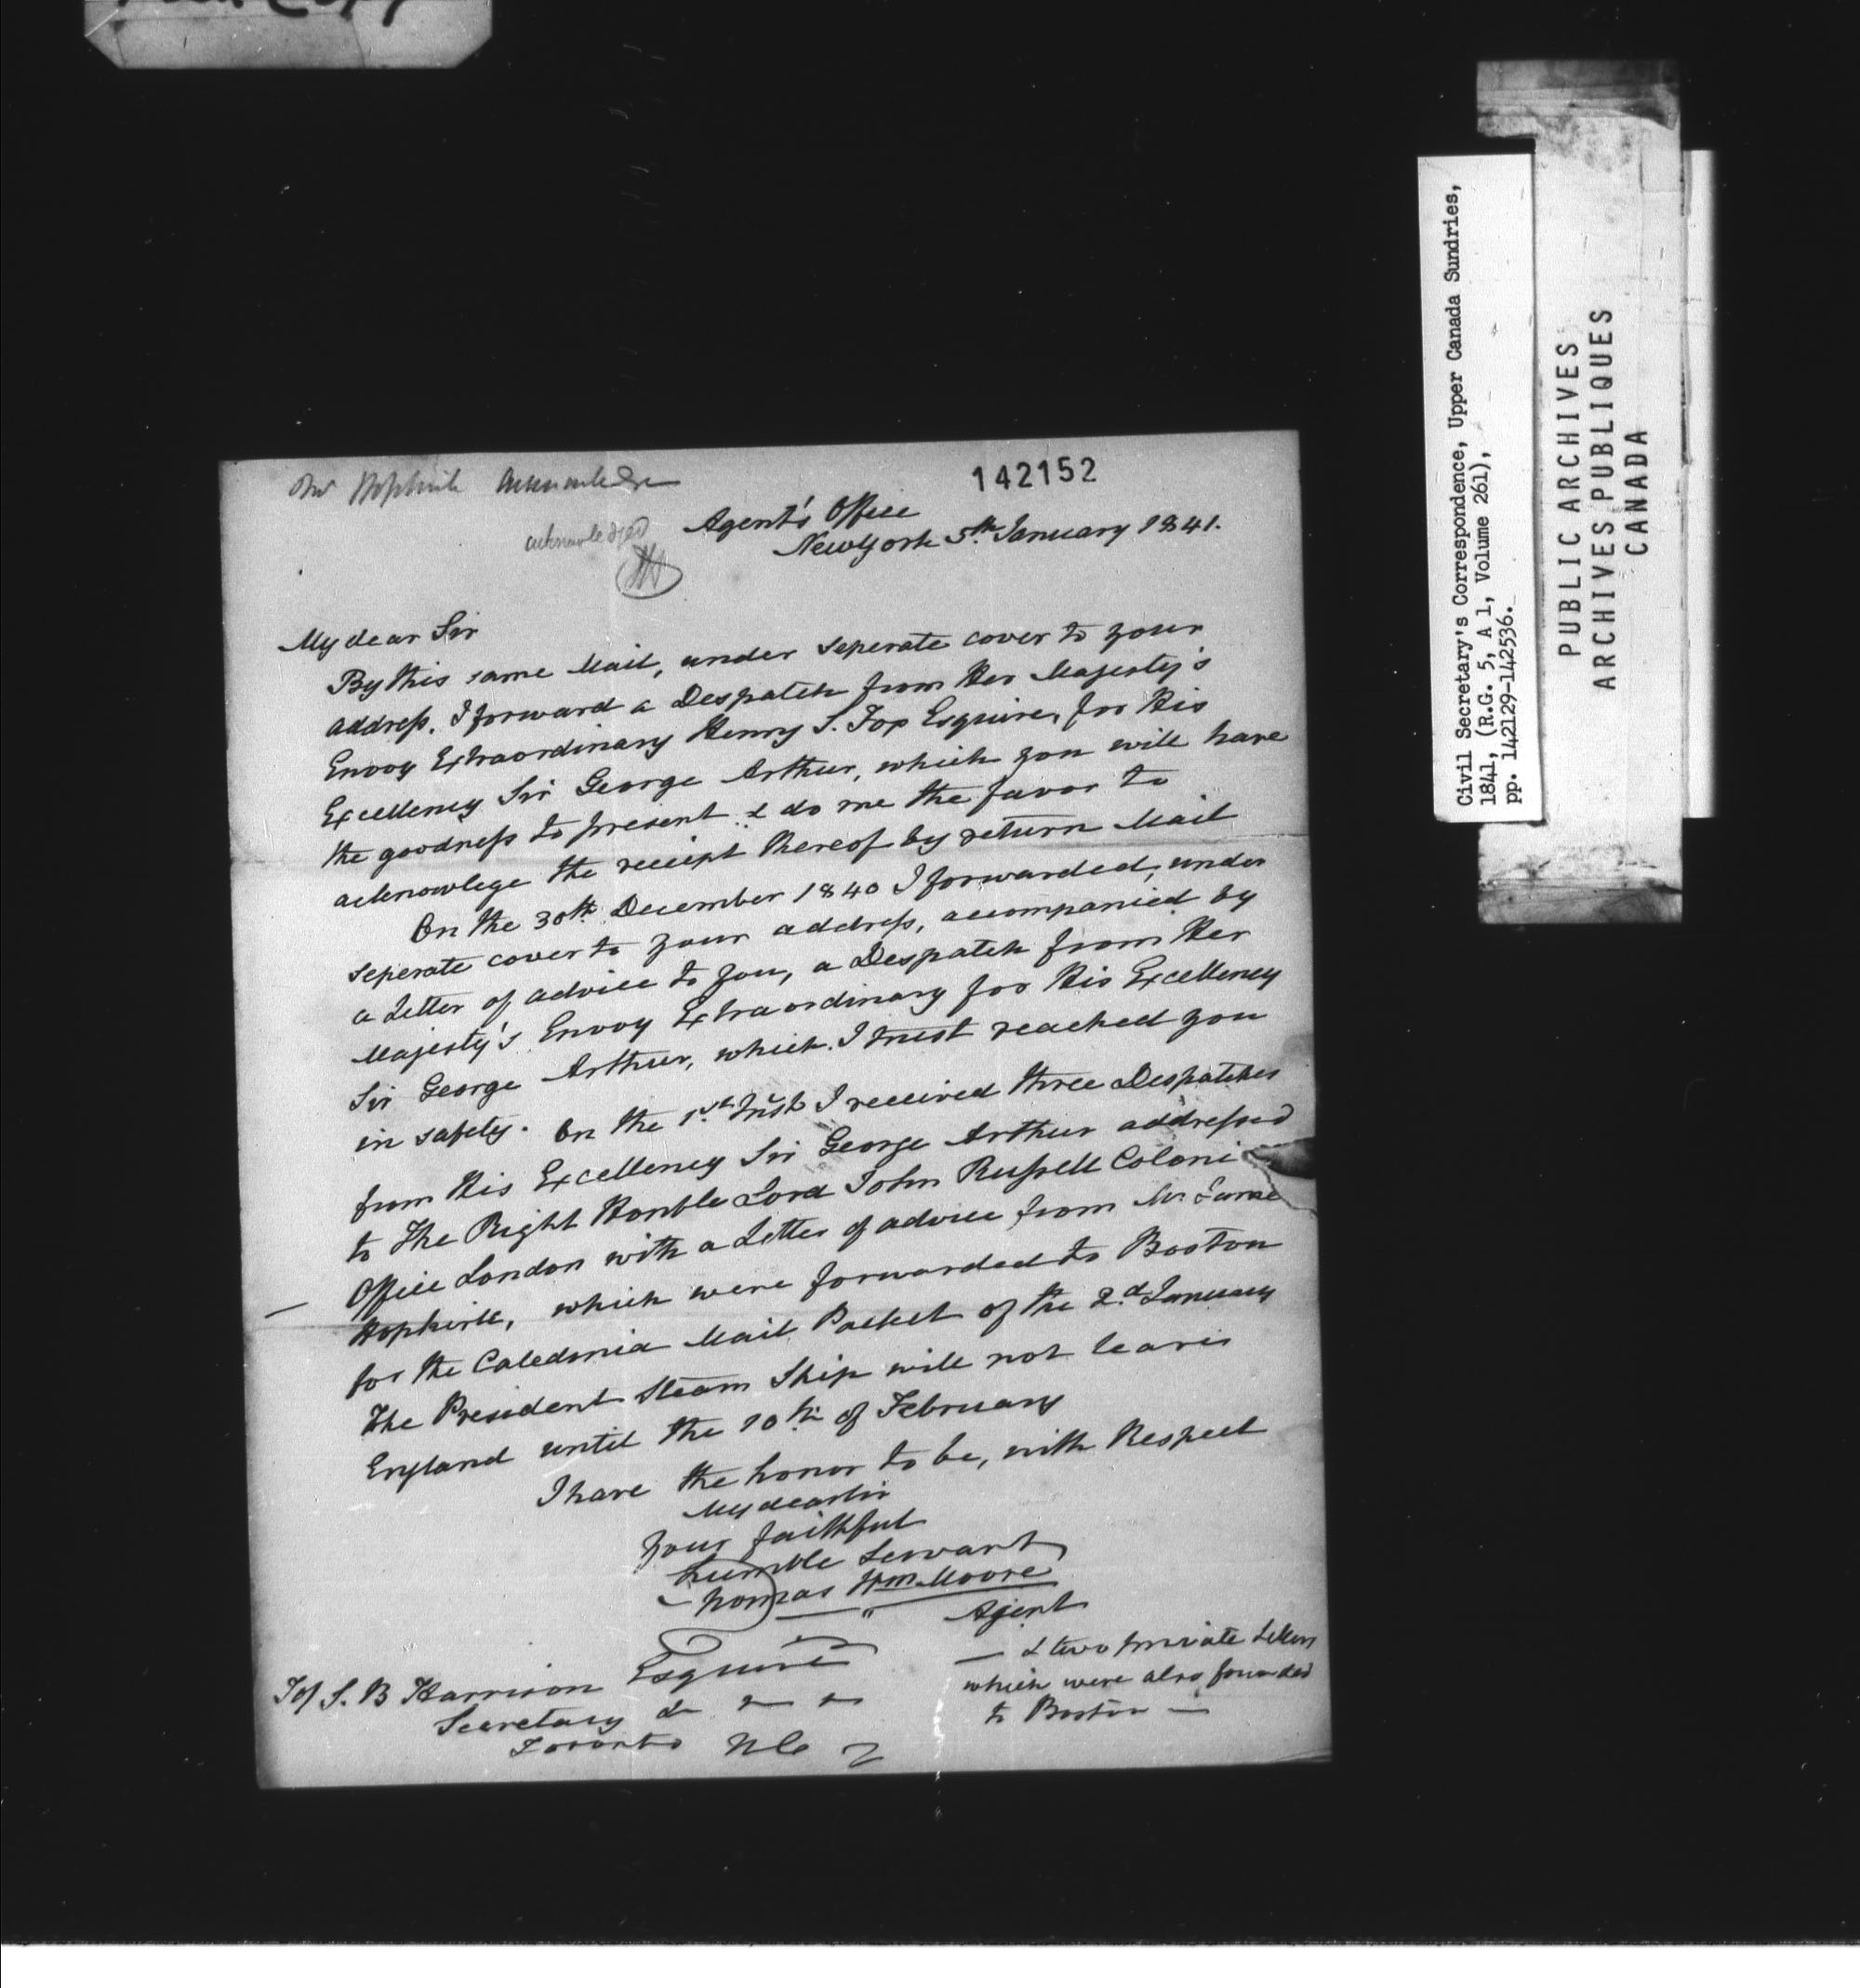 Copy
Mr Hopkirk Acknowledge
142152
acknowledged
Agent's Office
New York 5th January 1841.
My dear Sir
By this same Mail, under seperate cover to your
address, I forward a Despatch from Her Majesty's
Envoy Extraordinary Henry S. Fox Esquire, for His
Excellency Sir George Arthur, which you will have
the goodness to present & do me the favor to
acknowlege the receipt thereof by return Mail
On the 30th December 1840 I forwarded, under
seperate cover to your address, accompanied by
a Letter of advice to you, a Despatch from Her
Majesty's Envoy Extraordinary for His Excellency
Sir George Arthur, which I trust reached you
in safety. On the 1st Inst I received three Despatches
from His Excellency Sir George Arthur addressed
to The Right Honble Lord John Russell Coloni
Office London with a Letter of advice from Mr Jame
Hopkirk, which were forwarded to Boston
for the Caledonia Mail Packet of the 2d January
The President Steam Ship will not leave
England until the 10th of February
I have the honor to be, with Respect
My dear Sir
Your faithful
humble Servant
Thomas Wm Moore
Agent
— & two private Letters
which were also forwarded
to Boston —
To S. B Harrison Esquire
Secretary &c
Toronto U C
Civil Secretary's Correspondence, Upper Canada Sundries,
1841, (R.G. 5, A 1, Volume 261),
pp. 142129-142536.
PUBLIC ARCHIVES
ARCHIVES PUBLIQUES
CANADA